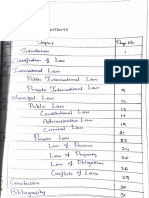 CONTENTS
Topics Page No.
Introduction 1
Classification of Law
International Law
Public International Law
Private International Law 9
Municipal Law
Public Law
Constitutional Law
Administrative Law
Criminal Law
Private Law
Law of Persons
Law of Property
Law of Obligations
Conflict of Laws
Conclusion
Bibliography